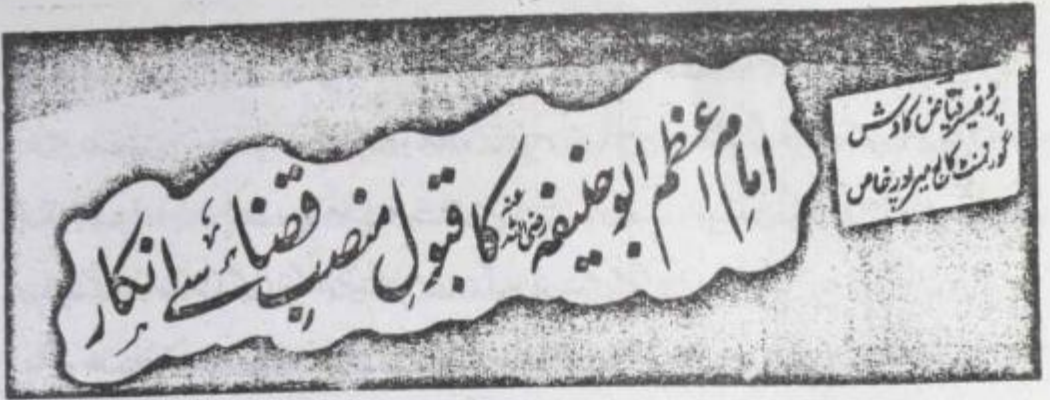 پروفیسر فیاض کاوش
گورنمنٹ کالج میرپور خاص
امام اعظم ابو حنیفہ رضی اللہ عنہ کا قبول منصبِ قضاء سے انکار